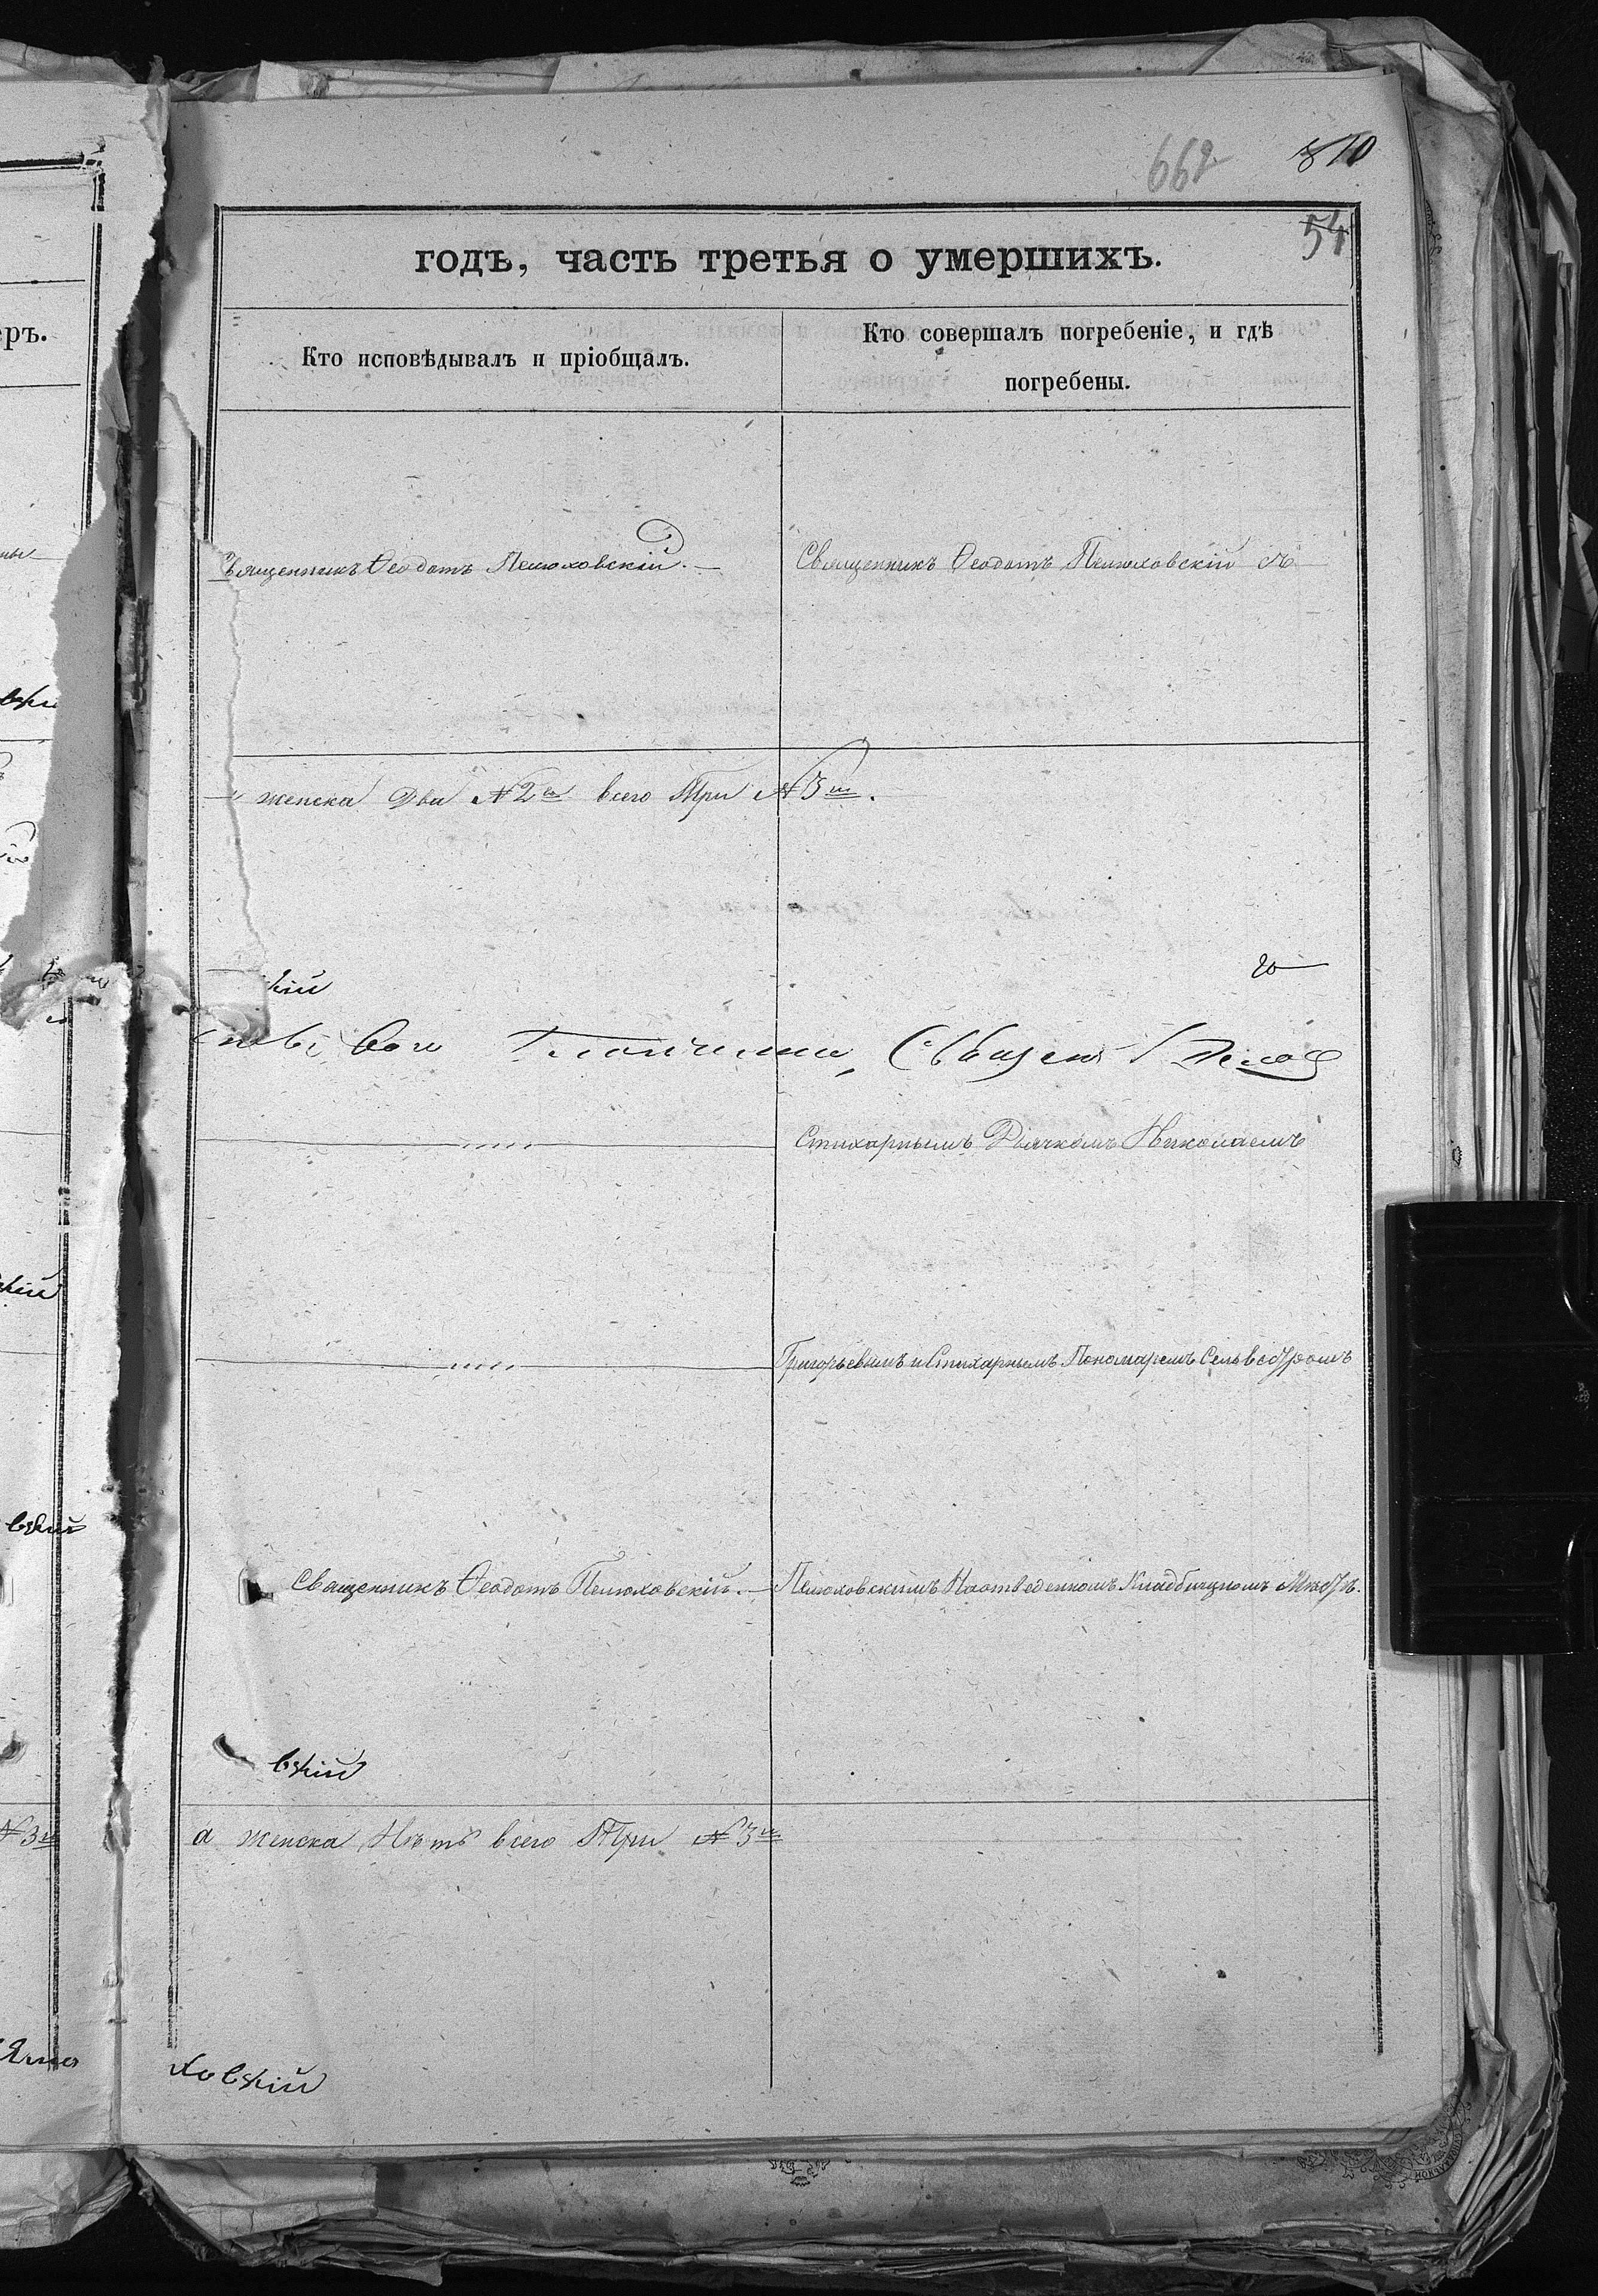 662
810
54
годъ, часть третья о умершихъ.
еръ.
Кто исповѣдывалъ и пріобщалъ.
Кто совершалъ погребеніе, и гдѣ
погребены.
Священникъ Ѳеодотъ Пелюховскій.
Священникъ Ѳеодотъ Пелюховскій съ
женска Два №2 всего Три №3
кій
Стихарнымъ Дьячкомъ Николаемъ
Григорьевымъ и Стихарнымъ Пономаремъ Сельвестромъ
Священникъ Ѳеодотъ Пелюховскій.
Пелюховскимъ На отведенномъ Кладбищномъ Мѣстѣ.
вскій
а женска Нѣтъ всего Три №3
ховскій